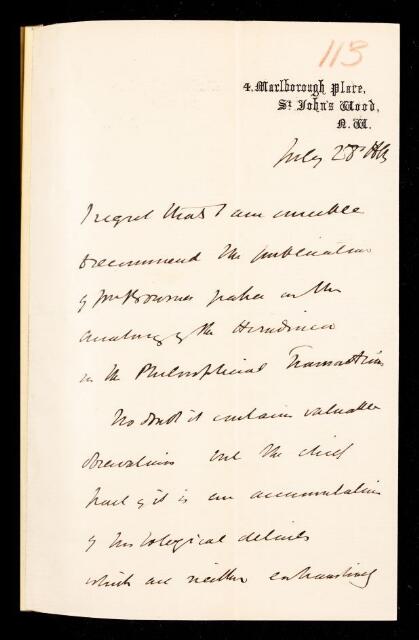 113
4. Marlborough Place,
St. John's Wood,
N.W.
July 28
I regret that I am unable
to recommend the publication
of Mr Bourne's paper on the
Anatomy of the Hirudinea
in the Philosophical Transactions
No doubt it contains valuable
observations but the chief
part of it is an accumulation
of histological details
which are neither exhaustively